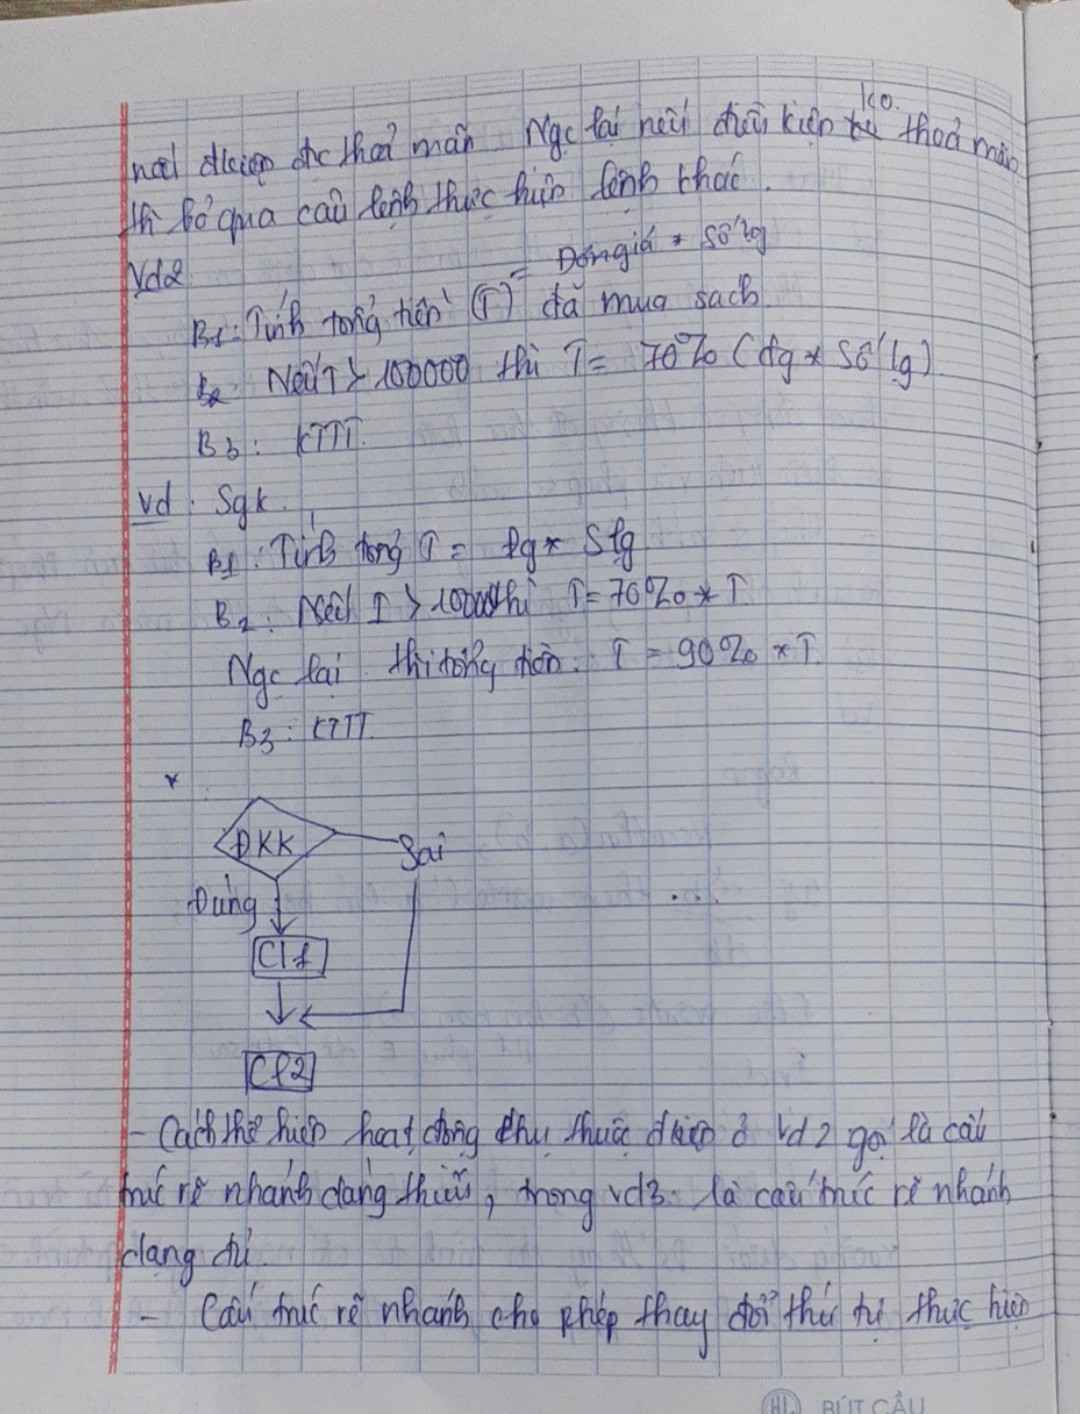 nếu đkiện đc thoả mãn Ngc lại nếu điều kiện ko. thoả mãn
thì bỏ qua câu lệnh thực hiện lệnh khác.
Vd2
= Đơn giá * số lg
B1: Tính tổng tiền (T) đã mua sach
B2: Nếu T > 100000 thì T = 70% (đg * số lg)
B3: KTTT.
Vd: Sgk.
B1: Tính tổng T = đg * Slg
B2: Nếu T > 100000 thì T = 70% * T
Ngc lại thì tổng tiền: T = 90% * T.
B3: KTTT.
*
ĐKK
Sai
Đúng
Cl1
Cl2
- Cách thể hiện hoạt động phụ thuộc đkiện ở Vd2 gọi là cấu
trúc rẽ nhánh dạng thiếu, trong vd3. là cấu trúc rẽ nhánh
dạng đủ.
- Cấu trúc rẽ nhánh cho phép thay đổi thứ tự thực hiện
BÚT CẦU